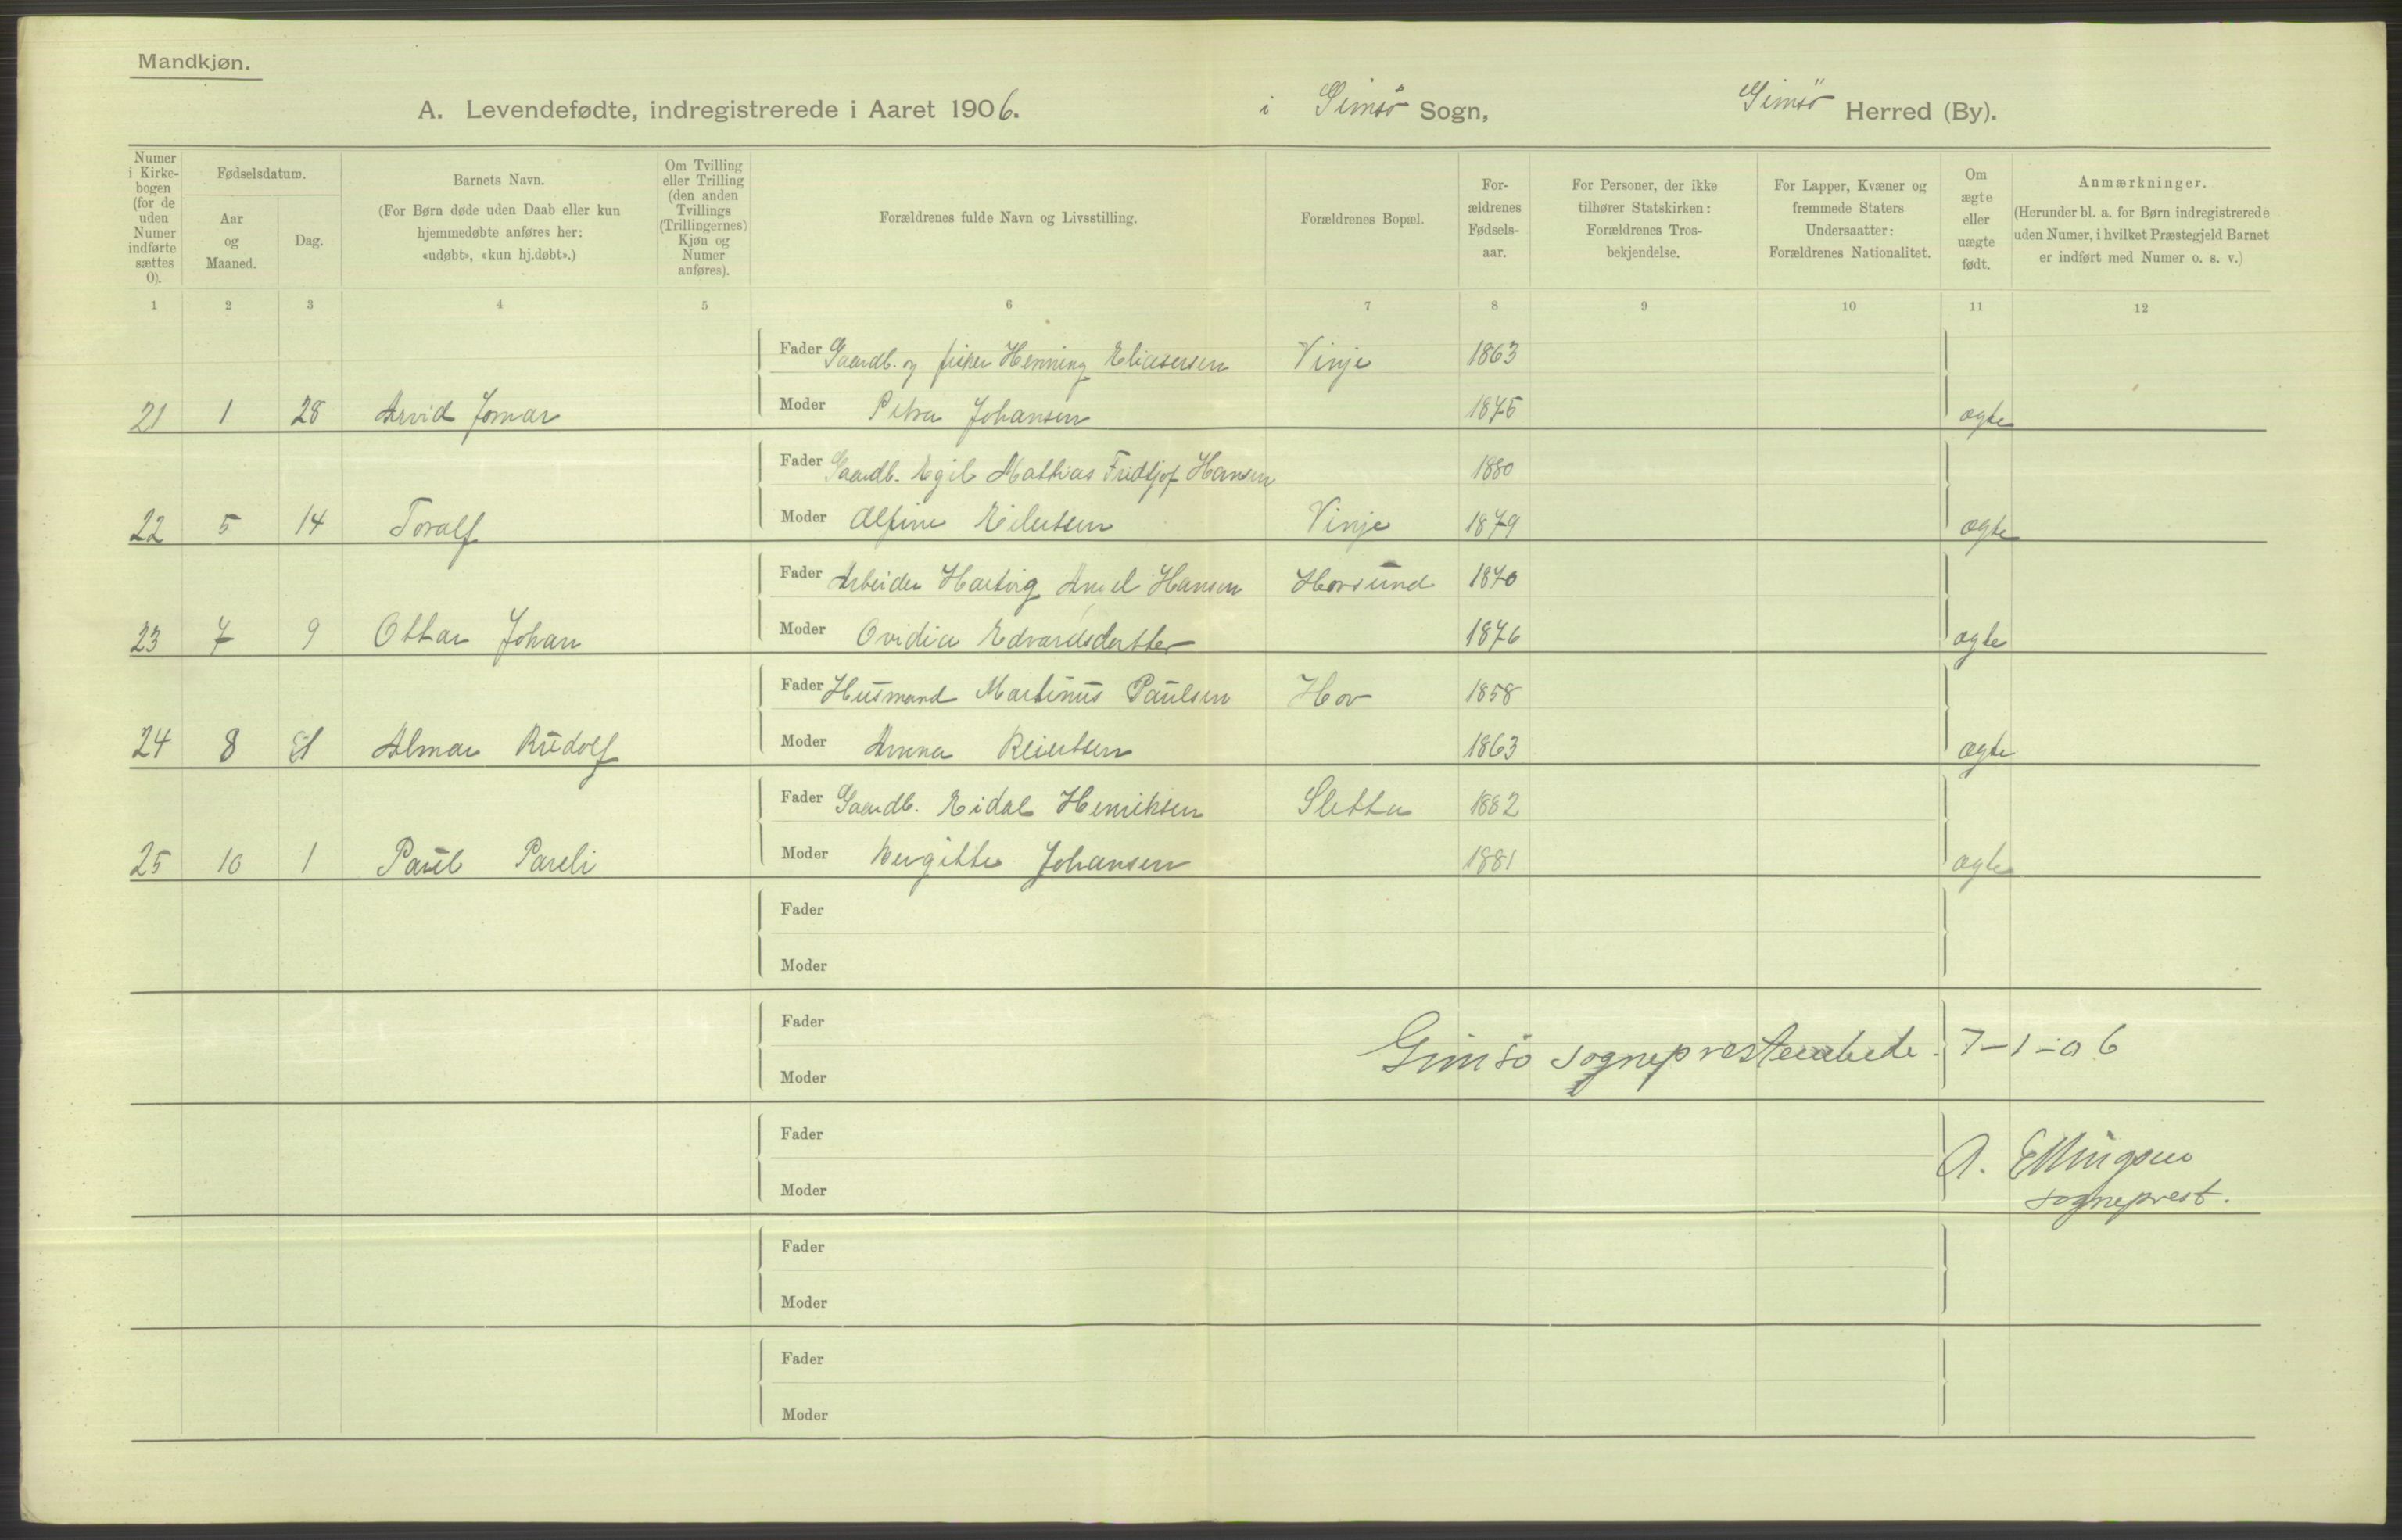 Mandkjøn.
A. Levendefødte, indregistrerede i Aaret 1906. i Gimsö Sogn, Gimsö Herred (By).
Numer i Kirkebogen (for de uden Numer indførte sættes 0).
Fødselsdatum.
Aar og Maaned.
Dag.
Barnets Navn.
(For Børn døde uden Daab eller kun hjemmedøbte anføres her: «udøbt», «kun hj.døbt».)
Om Tvilling eller Trilling (den anden Tvillings (Trillingernes) Kjøn og Numer anføres).
Forældrenes fulde Navn og Livsstilling.
Forældrenes Bopæl.
Forældrenes Fødselsaar.
For Personer, der ikke tilhører Statskirken: Forældrenes Trosbekjendelse.
For Lapper, Kvæner og fremmede Staters Undersaatter: Forældrenes Nationalitet.
Om ægte eller uægte født.
Anmærkninger.
(Herunder bl. a. for Børn indregistrerede uden Numer, i hvilket Præstegjeld Barnet er indført med Numer o. s. v.)
1 2 3 4 5 6 7 8 9 10 11 12
Fader Gaardb. og fisker Henning Eliasersen Vinje 1863
21 1 28 Arvid Jomar Moder Petra Johansen 1875 ægte
Fader Gaardb. Egil Mathias Fridtjof Hansen 1880
22 5 14 Toralf Moder Alfine Eilertsen Vinje 1879 ægte
Fader Arbeider Hartvig Hansen Hovsund 1870
23 7 9 Ottar Johan Moder Ovidia Edvardsdatter 1876 ægte
Fader Husmand Martinus Paulsen Hov 1858
24 8 Almar Rudolf Moder Anna Reiertsen 1863 ægte
Fader Gaardb. Eidal Henriksen Sletta 1882
25 10 1 Paul Pareli Moder Bergitte Johansen 1881 ægte
Fader
Moder
Fader
Gimsö sogneprestembede 7-1-06
Moder
Fader
A. Ellingsen
Moder
sogneprest.
Fader
Moder
Fader
Moder